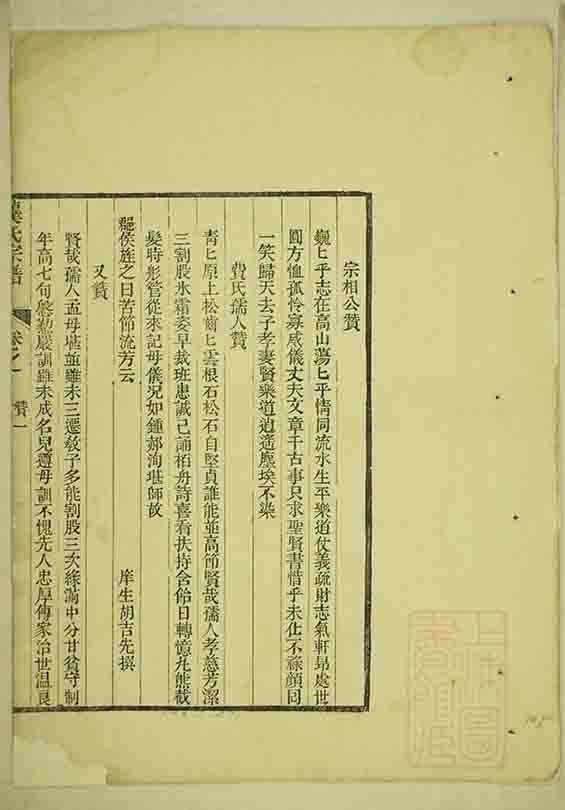 宗相公贊
巍匕乎志在高山蕩匕乎情同流水生平樂道仗義疏財志氣軒昂處世
圓方恤孤怜寡威儀丈夫文章千古事只求聖賢書惜乎未仕不祿顏回
一笑歸天去子孝妻賢樂道逍遙塵埃不染
費氏孺人贊
青匕原上松齒匕雲根石松石自堅貞誰能並高節賢哉孺人孝慈芳潔
三割股氷霜姿早裁班忠誠己誦栢舟詩喜看扶持含飴日轉憶丸熊截
髮時彤管從來記母儀況如鍾郝洵堪師故
縣侯旌之曰苦節流芳云
庠生胡吉先撰
又贊
賢哉孺人孟母堪並雖未三遷教子多能割股三次絲滿中分甘貧守制
年高七旬慇懃嚴訓雖未成名兒遵母訓不愧先人忠厚傳家治世溫良
氏宗譜
卷之一
贊一